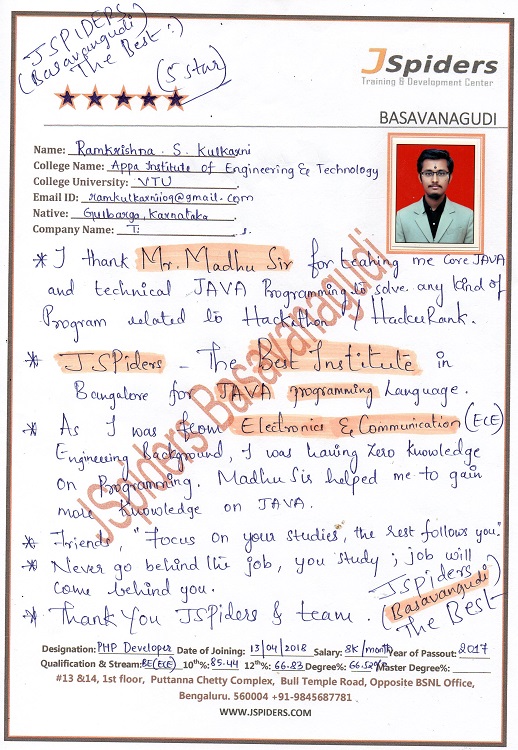 JSPIDERS
(Basavangudi)
The Best :)
(5 star)
JSpiders
Training & Development Center
BASAVANAGUDI
Name: Ramkrishna . S. Kulkarni
College Name: Appa Institute of Engineering & Technology
College University: VTU
Email ID: ramkulkarniiog@gmail.com
Native: Gulbarga, Karnataka
Company Name: T: s.
* I thank Mr. Madhu Sir for teahing me core JAVA
and technical JAVA Programming to solve any kind of
Program related to Hackithon / HackerRank.
* JSPiders - The Best Institute in
Bangalore for JAVA programming Language.
* As I was from Electronics & Communication (ECE)
Engineering Background, I was having zero knowledge
on Programming. Madhu Sir helped me to gain
more knowledge on JAVA.
* Friends, "Focus on your studies, the rest follows you."
* Never go behind the job, you study ; job will
come behind you.
* Thank You JSPiders & team.
JSPiders
(Basavangudi)
The Best
JSpiders Basavanagudi
Designation: PHP Developer Date of Joining: 13/04/2018 Salary: 8K/month Year of Passout: 2017
Qualification & Stream: BE(ECE) 10th%: 85.44 12th%: 66.83 Degree%: 66.52% Master Degree%:
#13 &14, 1st floor, Puttanna Chetty Complex, Bull Temple Road, Opposite BSNL Office,
Bengaluru. 560004 +91-9845687781
WWW.JSPIDERS.COM